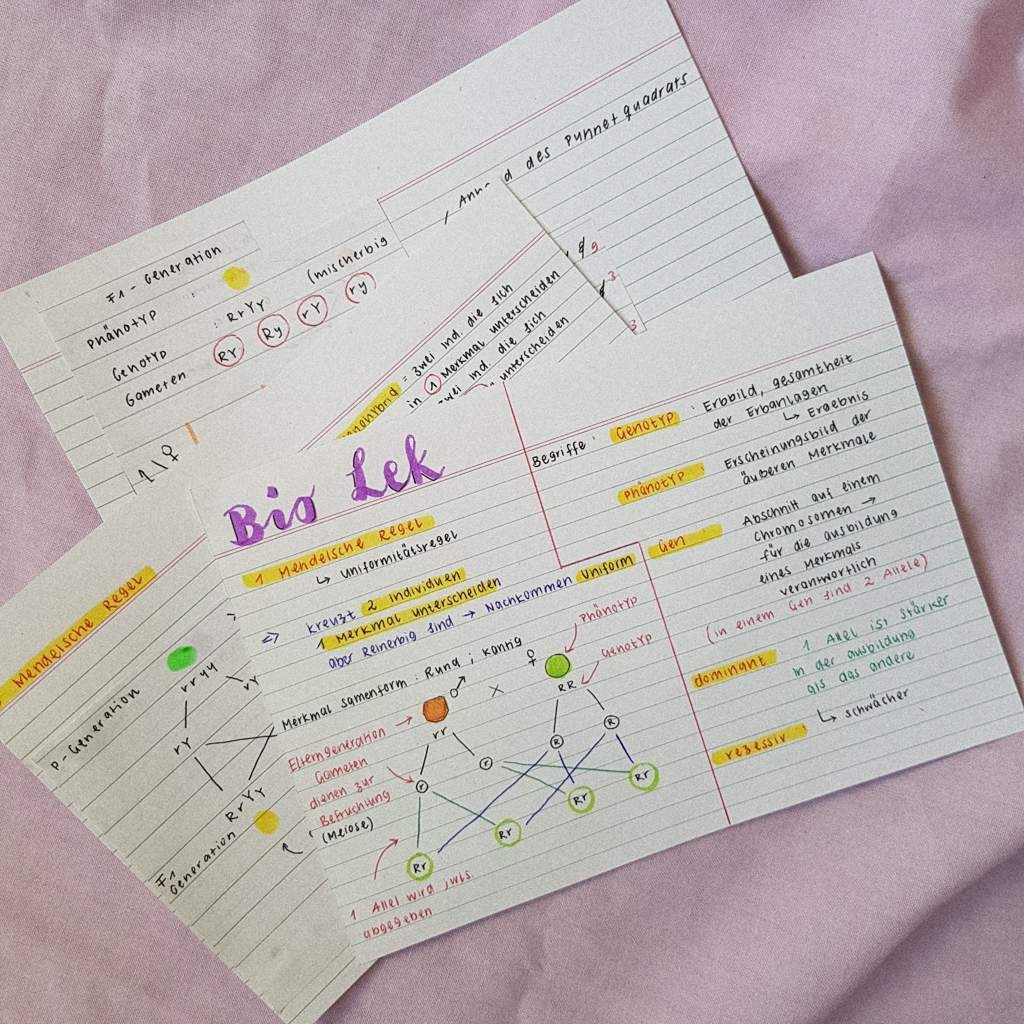 Anh d des punnet quadrats
F1 - Generation
Phänotyp :
Genotyp : RrYy (mischerbig
Gameten RY Ry rY ry
9
3
3
= zwei Ind die sich
in 1 Merkmal unterscheiden
wei Ind die sich
unterscheiden
1 \ ♀
Bio Lek
1 Mendelsche Regel
↳ Uniformitätsregel
=> kreuzt 2 Individuen
1 Merkmal unterscheiden
aber Reinerbig sind → Nachkommen Uniform
Merkmal Samenform : Rund ; kantig
Phänotyp
Genotyp
♂ x ♀
rr RR
Elterngeneration →
Gameten
dienen zur
Befruchtung
(Meiose)
r r R R
Rr Rr Rr Rr
1 Allel wird jwls.
abgegeben
Begriffe : Genotyp : Erbbild, gesamtheit
der Erbanlagen
↳ Ergebnis
Phänotyp Erscheinungsbild der
äußeren Merkmale
Gen Abschnitt auf einem
Chromosomen →
für die ausbildung
eines Merkmals
verantwortlich
(in einem Gen sind 2 Allele)
dominant 1 Allel ist stärker
in der ausbildung
als das andere
rezessiv ↳ schwächer
Mendelsche Regel
P-Generation
rryy
rY
rY
RrYy
F1
Generation